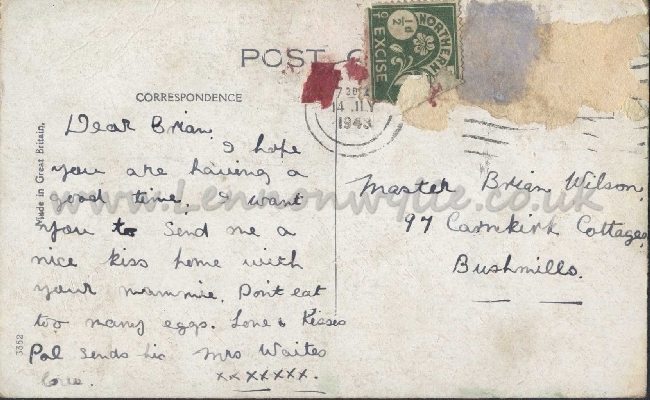 POST
CORRESPONDENCE
Made in Great Britain.
3352
½d
NORTHERN
EXCISE
1943
Dear Brian
I hope
you are having a
good time. I want
you to send me a
nice kiss home with
your mammie. Don't eat
too many eggs. Love & Kisses
Pal sends his Mrs Waites
love. xx xxxxx.
Master Brian Wilson,
97 Carnkirk Cottages
Bushmills.
www.lennonwylie.co.uk